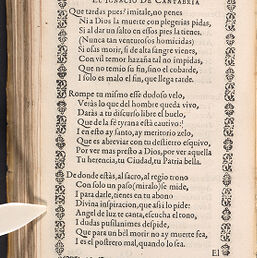 EL IGNACIO DE CANTABRIA
Que tardas pues? imitale, no penes
Ni a Dios la muerte con plegerias pidas,
Si al dar un salto en ellos pies la tienes.
(Nunca tan venturosos homicidas)
Si osas morir, si de alta sangre vienes,
Con vil temor hazaña tal no impidas,
Que no temio so fin, sino el cobarde,
I solo es malo el fin, que llega tarde.
Rompe tu mismo esse dudoso velo,
Veràs lo que del hombre queda vivo,
Daràs a tu discurso libre el buelo,
Que de la fe tyrana està cautivo:
I en esto ay santo, ay meritorio zelo,
Que es abreviar con tu destierro esquivo,
Por ver mas presto a Dios, por ver aquella
Tu herencia, tu Ciudad, tu Patria bella.
De donde estàs, al sacro, al regio trono
Con solo un paso (miralo) se mide,
I para darle, tienes en tu abono
Divina inspiracion, que assi lo pide:
Angel de luz te canta, escucha el tono,
I dudas pusilanimes despide,
Que para un bel morir no ay muerte sea,
I es el postrero mal, quando lo sea.
El